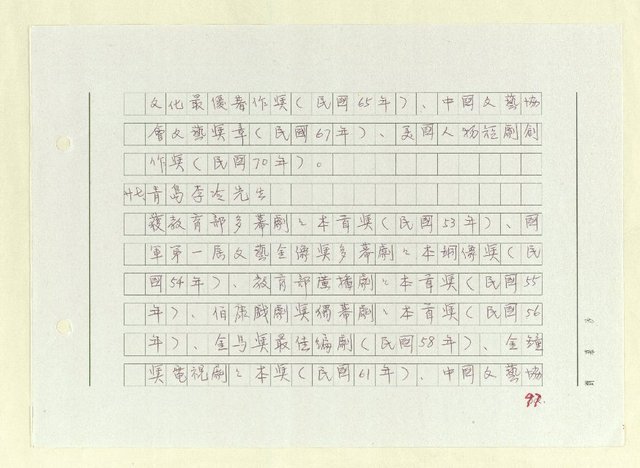 文化最優著作獎(民國65年)、中國文藝協
會文藝獎章(民國67年)、美國人物短劇創
作獎(民國70年)。
卅七、青島李冷先生
獲教育部多幕劇之本首獎(民國53年)、國
軍第一屆文藝金像獎多幕劇之本銅像獎(民
國54年)、教育部廣播劇之本首獎(民國55
年)、伯康戲劇獎獨幕劇之本首獎(民國56
年)、金馬獎最佳編劇(民國58年)、金鐘
獎電視劇之本獎(民國61年)、中國文藝協
97.